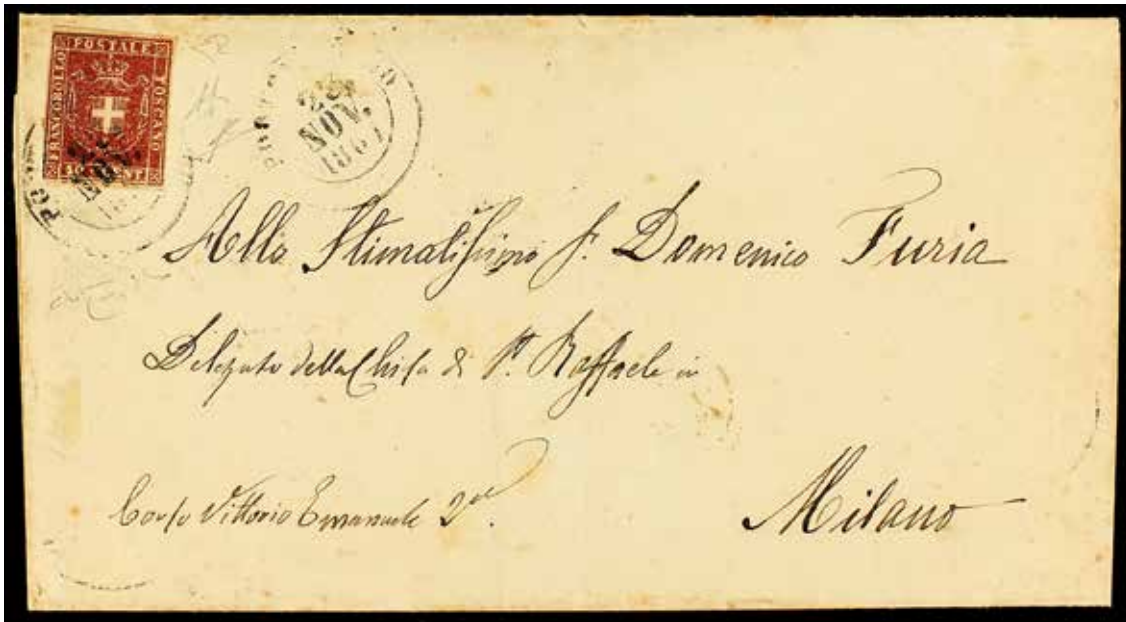 FRANCOBOLLO POSTALE TOSCANO
40 CENT
NOV.
NOV.
1861
Alla Stimatissimo S. Domenico Furia
Delegato della Chisa di S. Raffaele in
Corso Vittorio Emanuele 2do.
Milano